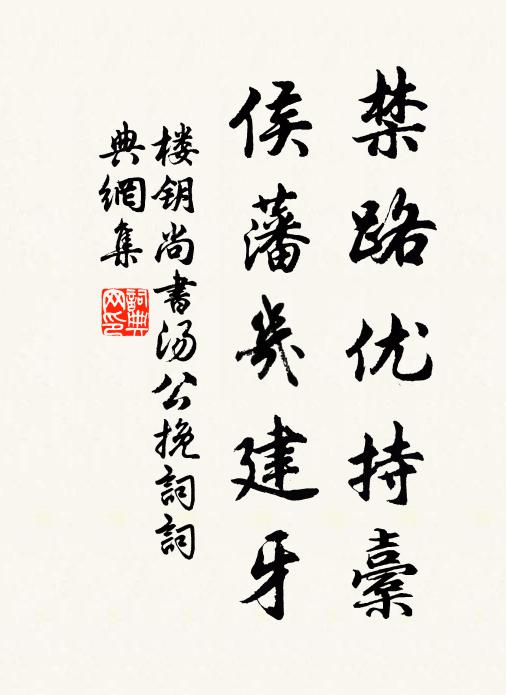 禁路优持橐
侯藩几建牙
楼钥尚書汤公挽詞詞
典網集
詞典網印